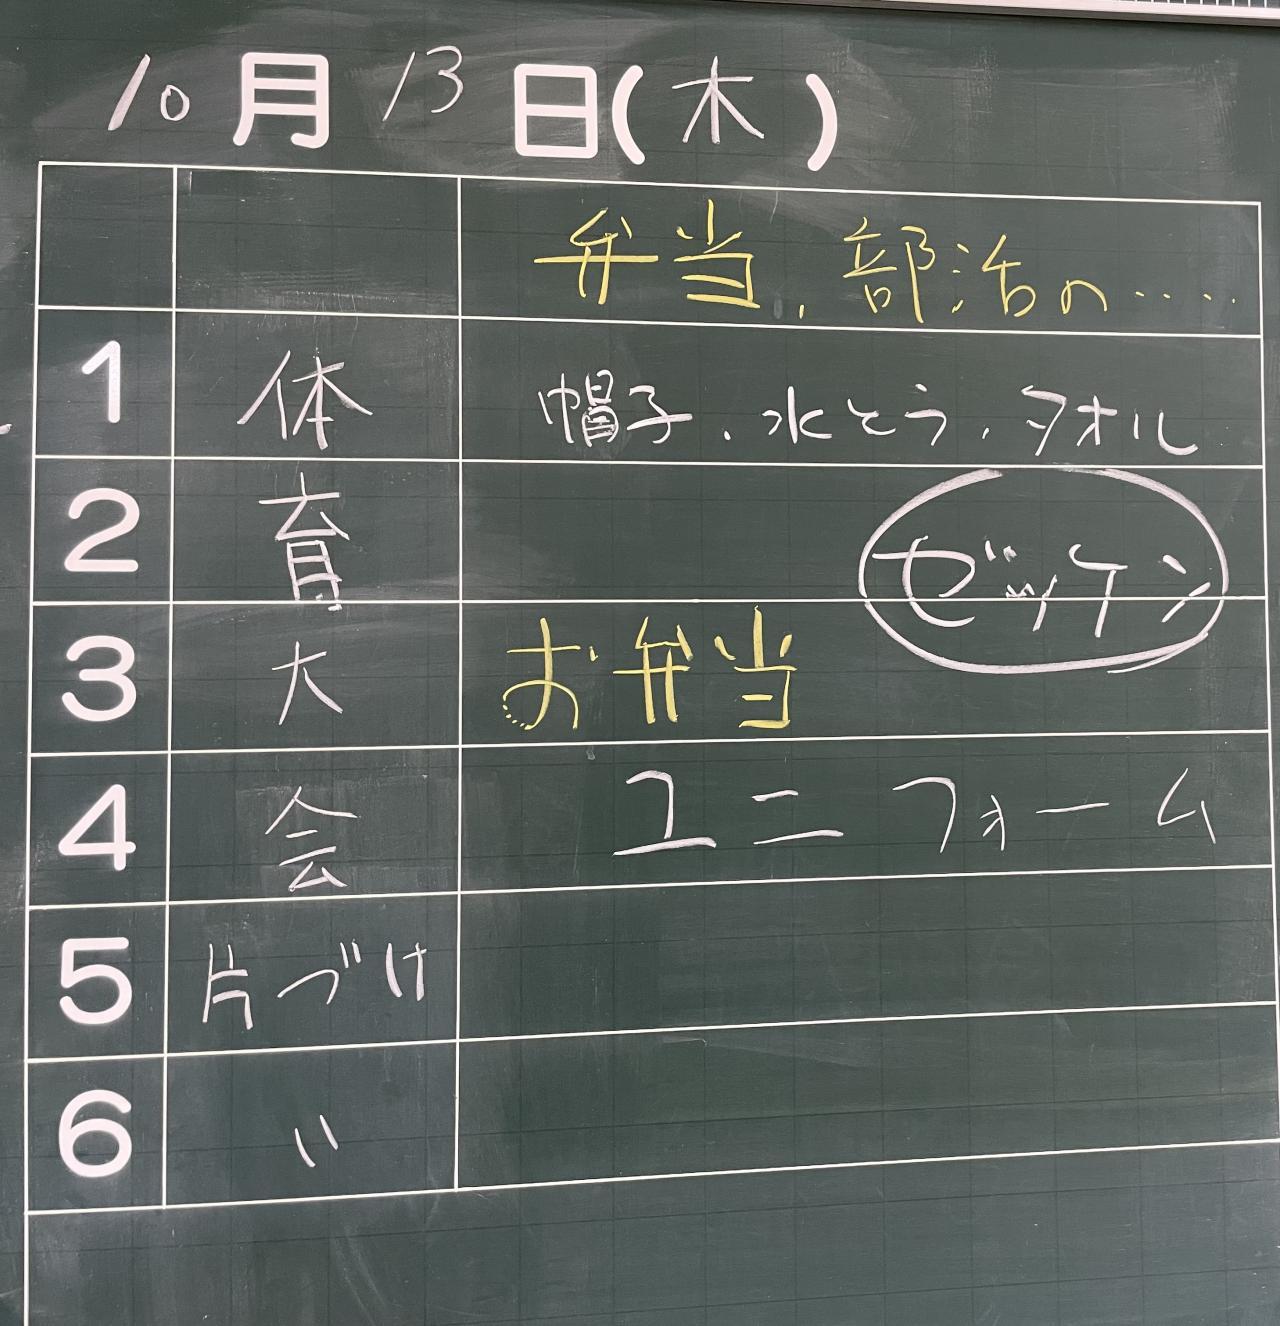 10月13日(木)
弁当、部活の.....
1 体 帽子、水とう、タオル
2 育 ゼッケン
3 大 お弁当
4 会 ユニフォーム
5 片づけ
6 〃